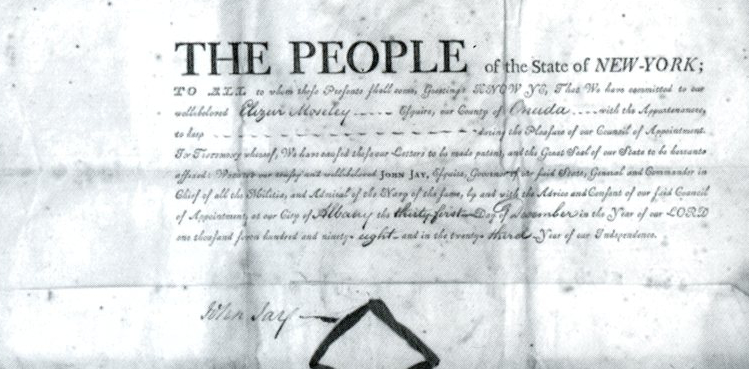 THE PEOPLE of the State of NEW-YORK;
TO ALL to whom these Presents shall come, Greeting: KNOW YE, That We have committed to our
wellbeloved Elizur Moseley Esquire, our County of Onuda with the Appurtenances,
to keep during the Pleasure of our Council of Appointment.
In Testimony whereof, We have caused these our Letters to be made patent, and the Great Seal of our State to be hereunto
affixed: Witness our trusty and wellbeloved JOHN JAY, Esquire, Governor of our said State, General and Commander in
Chief of all the Militia, and Admiral of the Navy of the same, by and with the Advice and Consent of our said Council
of Appointment, at our City of Albany the thirty first Day of December in the Year of our LORD
one thousand seven hundred and ninety eight and in the twenty third Year of our Independence.
John Jay